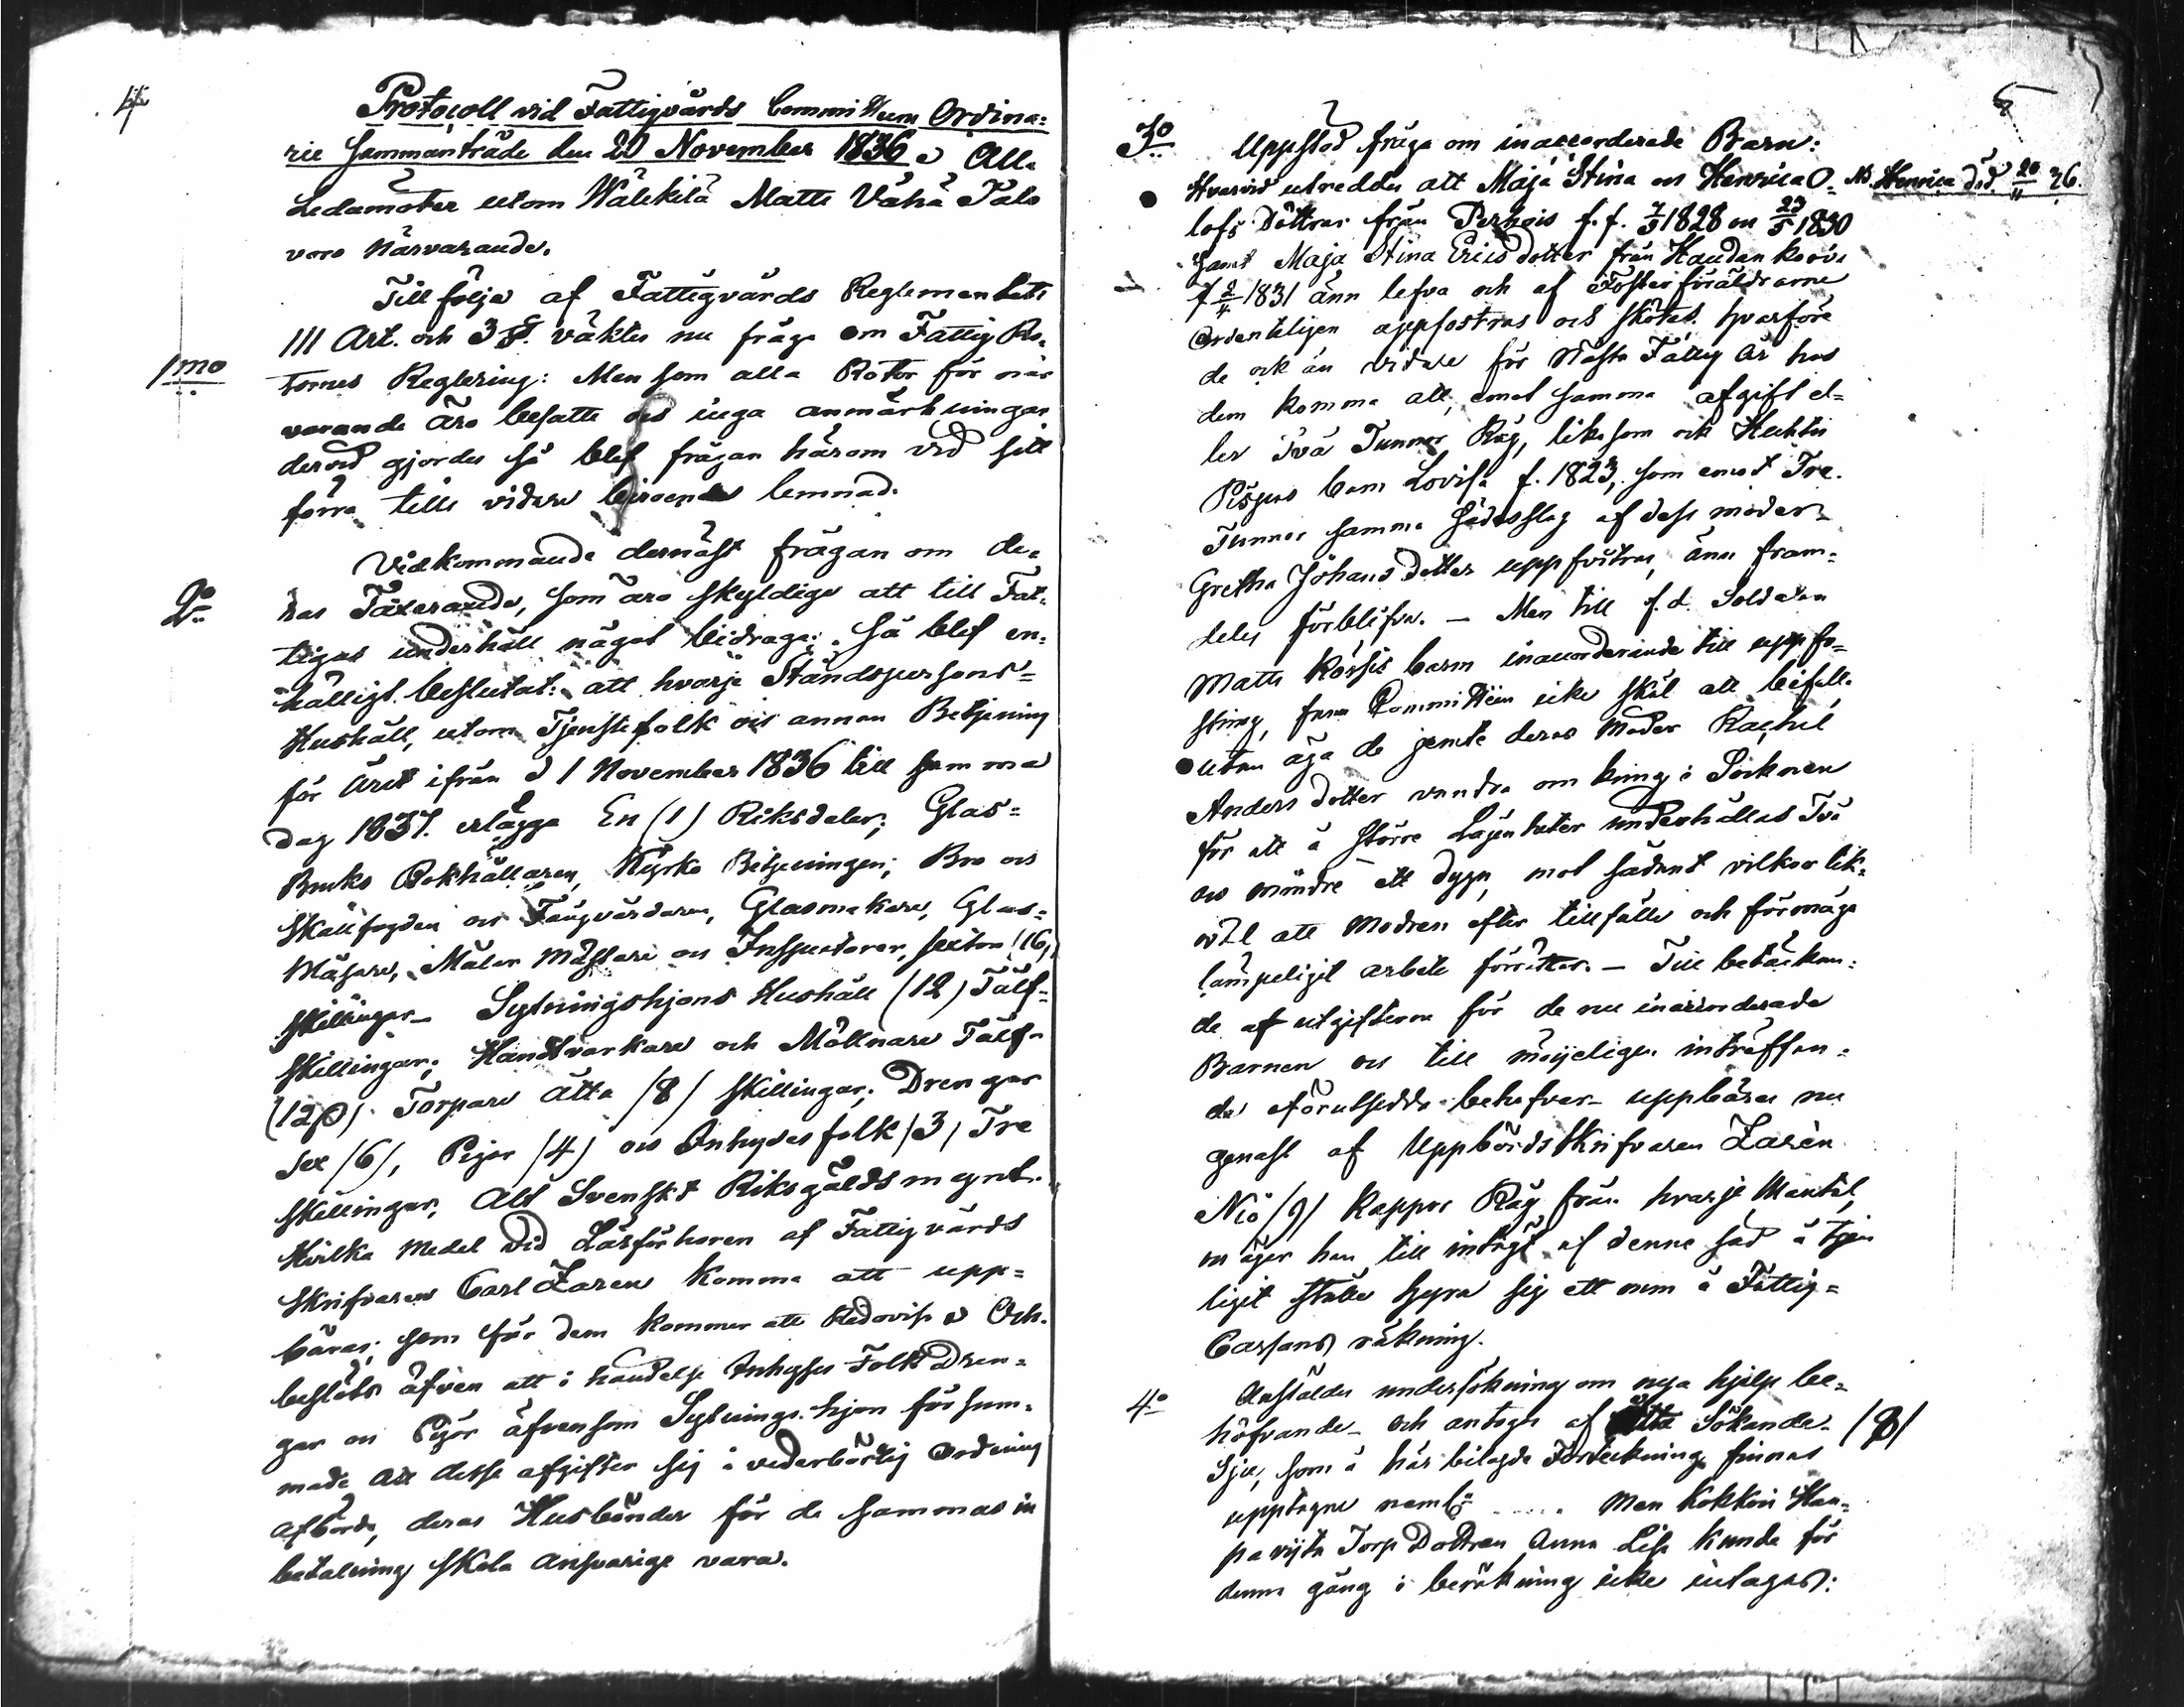 4
Protocoll vid Fattigvårds Committeens Ordina=
rie Sammanträde den 20 November 1836. Alla
Ledamöter utom Wälikilä Matts Vähä Talo
voro närvarande.
Till följe af Fattigvårds Reglementets
III Art. och 3 §. väktes nu fråga om Fattig Ro-
1mo
tornes Reglering: Men som alla Rotor för när
varande äro besatte och inga anmärkningar
dervid gjordes så blef frågan härom vid sitt
förra tills vidare beroende lemnad.
Vidkommande dernäst frågan om de-
2o
ras Taxerande, som äro skyldige att till Fat-
tigas underhåll något bidraga; så blef en-
hälligt beslutat: att hvarje Ståndspersons=
Hushåll, utom Tjenstefolk och annan Betjening
för året ifrån d 1 November 1836 till samma
dag 1837. erlägga En (1) Riksdaler; Glas=
Bruks Bokhållaren, Kyrko Betjeningen; Bro och
Skallfogden och Fångvårdaren, Glasmakare, Glas=
Mäsare, Målar Mästare och Inspectorer, sexton (16)
Skillingar. Sytningshjons Hushåll (12) Tolf
Skillingar; Handtvärkare och Möllnare Tolf
(12) Torpare Åtta (8) skillingar; Drengar
Sex (6), Pigor (4) och Inhyses folk (3) Tre
skillingar, Allt Svenskt Riksgälds mynt.
Hvilka medel vid Läsförhören af Fattigvårds
Skrifvaren Carl Zaren komma att upp=
bäras; som för dem kommer att Redovisa. Och
beslöts äfven att i händelse Inhyses Folk Dren=
gar och Pigor äfvensom Sytnings hjon försum-
made att desse afgifter sig i vederbörlig Ordning
afbörda, deras Husbönder för de sammas in
betalning skola ansvarige vara.
5
3o
Uppstod fråga om inaccorderade Barn:
Hvarvid utreddes att Maja Stina och Henrica O- NB. Henrica död 20/11 36.
lofs Döttrar från Perhois f.f. 7/3 1828 och 23/5 1830
samt Maja Stina Ericsdotter från Haudankorvi
f 2/4 1831 änn lefva och af Fosterföräldrarne
Ordenteligen uppfostras och skötas, hvarföre
de ock än vidare för nästa Fattig År hos
dem komma att, emot samma afgift el=
ler Två Tunnor Råg, likasom ock Huhtis
Pispas barn Lovisa f. 1823, som emot Tre
Tunnor samma Sädesslag af dess moder
Gretha Johans dotter uppfostras, änn fram-
deles förblifva. — Men till f.d. Soldaten
Matts Körsis barn inaccorderande till uppfo-
string, fann Committéen icke skäl att bifalla
utan äga de jemte deras Moder Rachel
Anders dotter vandra omkring i Socknen
för att å större Lägenheter underhållas Två
och mindre ett dygn, mot sådant vilkor lik-
väl att Modren efter tillfälle och förmåga
lämpeligit arbete förrättar. — Till betäckan-
de af utgifterne för de nu inaccorderade
Barnen och till möjeligen inträffan-
de oförutsedda behofver uppbäres nu
genast af UppbördsSkrifvaren Zarèn
Nio (9) Kappor Råg från hvarje Mantal,
och äger han till intägt af denne säd å tjen
ligit ställe hyra sig ett rum å Fattig=
Cassans räkning.
4o
Anstäldes undersökning om nya hjelp be-
höfvande och antogos af Åtta Sökande (8)
Sju, som å här bilagde Förteckning finnas
upptagne neml: .... Men Kokkoin Haa-
pavista Torp Dottren Anna Lisa kunde för
denna gång i beräkning icke intagas: